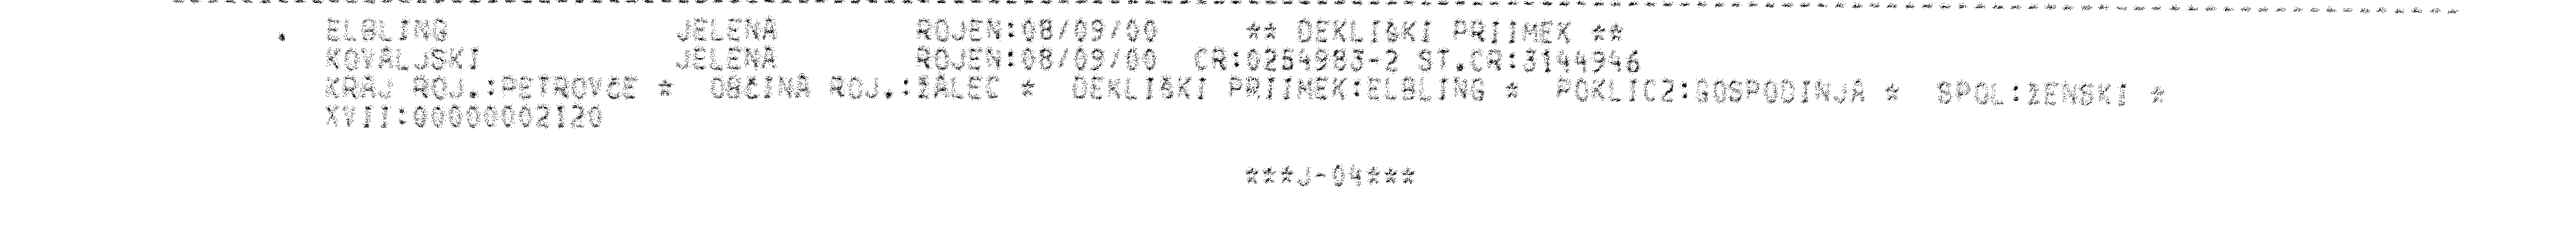 . ELBLING JELENA ROJEN:08/09/00 ** DEKLIŠKI PRIIMEK **
KOVALJSKI JELENA ROJEN:08/09/00 CR:0254983-2 ST.CR:3144946
KRAJ ROJ.:PETROVČE * OBČINA ROJ.:ŽALEC * DEKLIŠKI PRIIMEK:ELBLING * POKLIC2:GOSPODINJA * SPOL:ŽENSKI *
XVII:00000002120
***J-04***